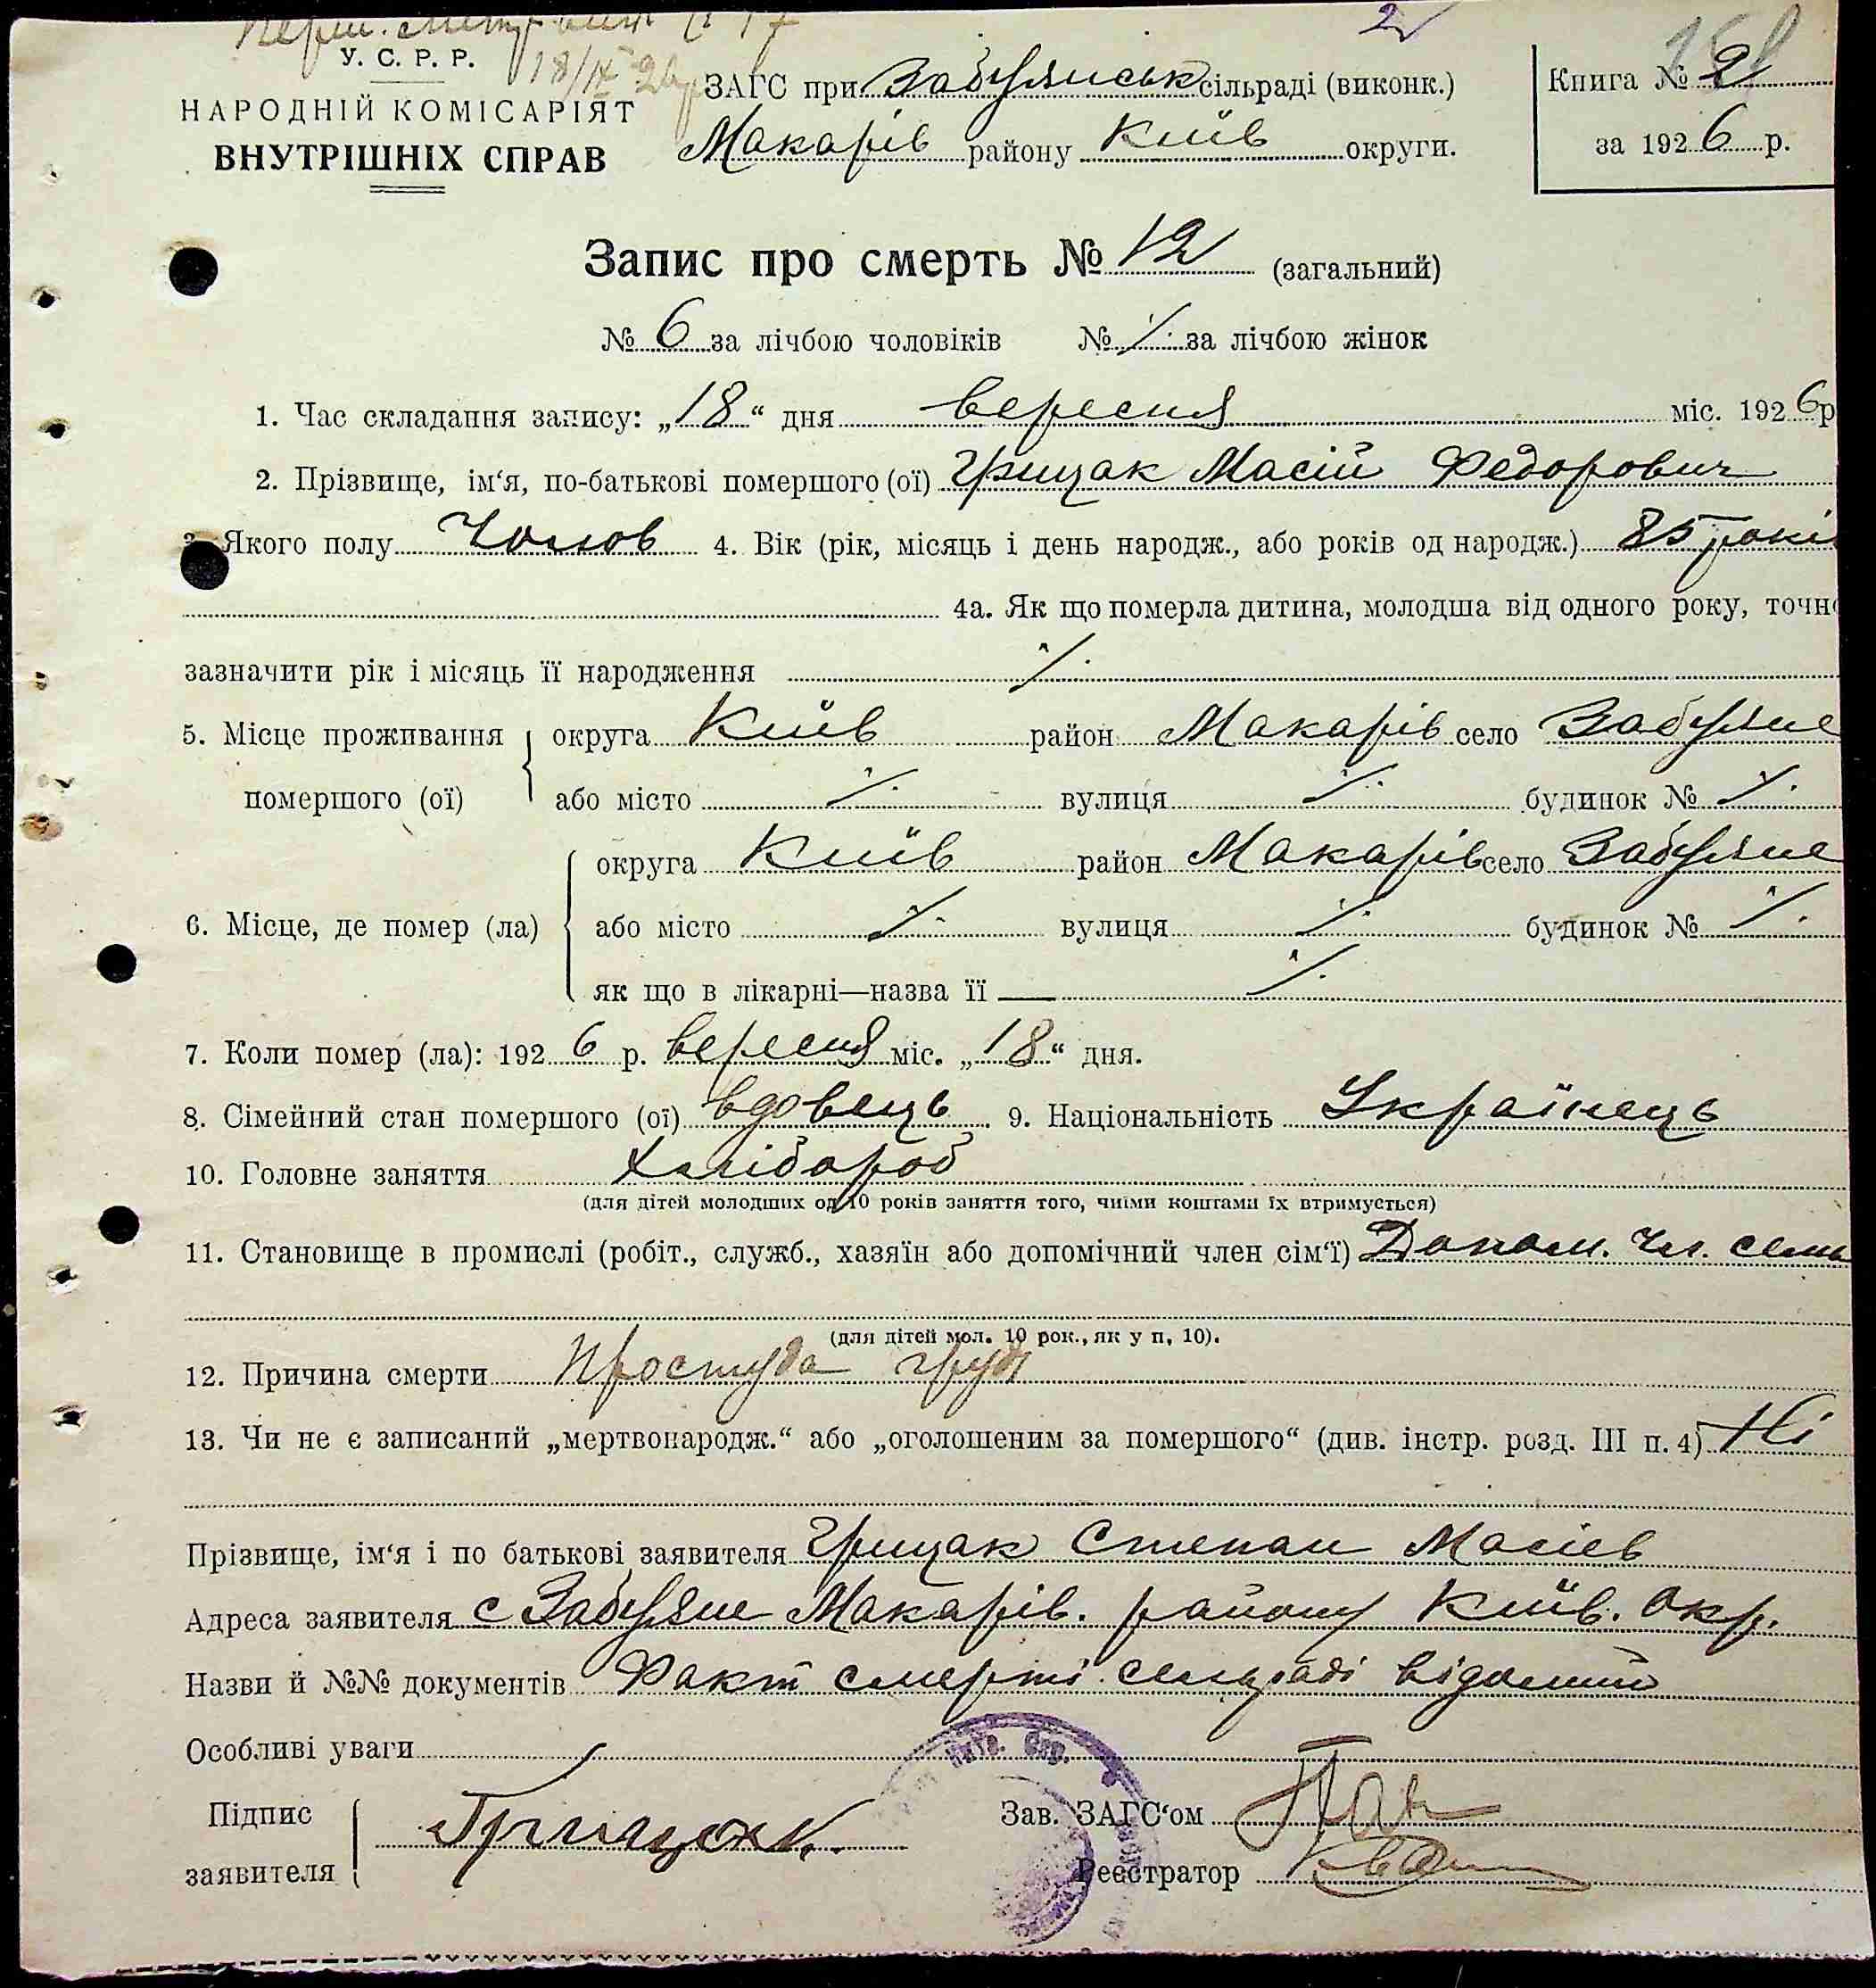 2
У. С. Р. Р.
18/IX 26р
НАРОДНІЙ КОМІСАРІЯТ
ВНУТРІШНІХ СПРАВ
ЗАГС при Забуянськ сільраді (виконк.)
Макарів району Київ округи.
Книга № 2
за 1926 р.
Запис про смерть № 12 (загальний)
№ 6 за лічбою чоловіків № ∕. за лічбою жінок
1. Час складання запису: „18“ дня вересня міс. 1926 р
2. Прізвище, ім‘я, по-батькові помершого (ої) Грищак Масій Федорович
3. Якого полу Чолов 4. Вік (рік, місяць і день народж., або років од народж.) 85 років
4а. Як що померла дитина, молодша від одного року, точно
зазначити рік і місяць її народження ∕.
5. Місце проживання помершого (ої) округа Київ район Макарів село Забуяне
або місто ∕. вулиця ∕. будинок № ∕.
6. Місце, де помер (ла) округа Київ район Макарів село Забуяне
або місто ∕. вулиця ∕. будинок № ∕.
як що в лікарні—назва її ∕.
7. Коли помер (ла): 1926 р. вересня міс. „18“ дня.
8. Сімейний стан помершого (ої) вдовець 9. Національність Українець
10. Головне заняття Хлібороб
(для дітей молодших од 10 років заняття того, чиїми коштами їх втримується)
11. Становище в промислі (робіт., служб., хазяїн або допомічний член сім‘ї) Допом. чл. семь
(для дітей мол. 10 рок., як у п, 10).
12. Причина смерти Простуда груд
13. Чи не є записаний „мертвонародж.“ або „оголошеним за помершого“ (див. інстр. розд. III п. 4) Ні
Прізвище, ім‘я і по батькові заявителя Грищак Степан Масієв
Адреса заявителя с Забуяне Макарів. району Київ. Окр.
Назви й №№ документів Факт смерті сільраді відомий
Особливі уваги
Київ. Окр.
Підпис заявителя Грищак.
Зав. ЗАГС‘ом
Реєстратор